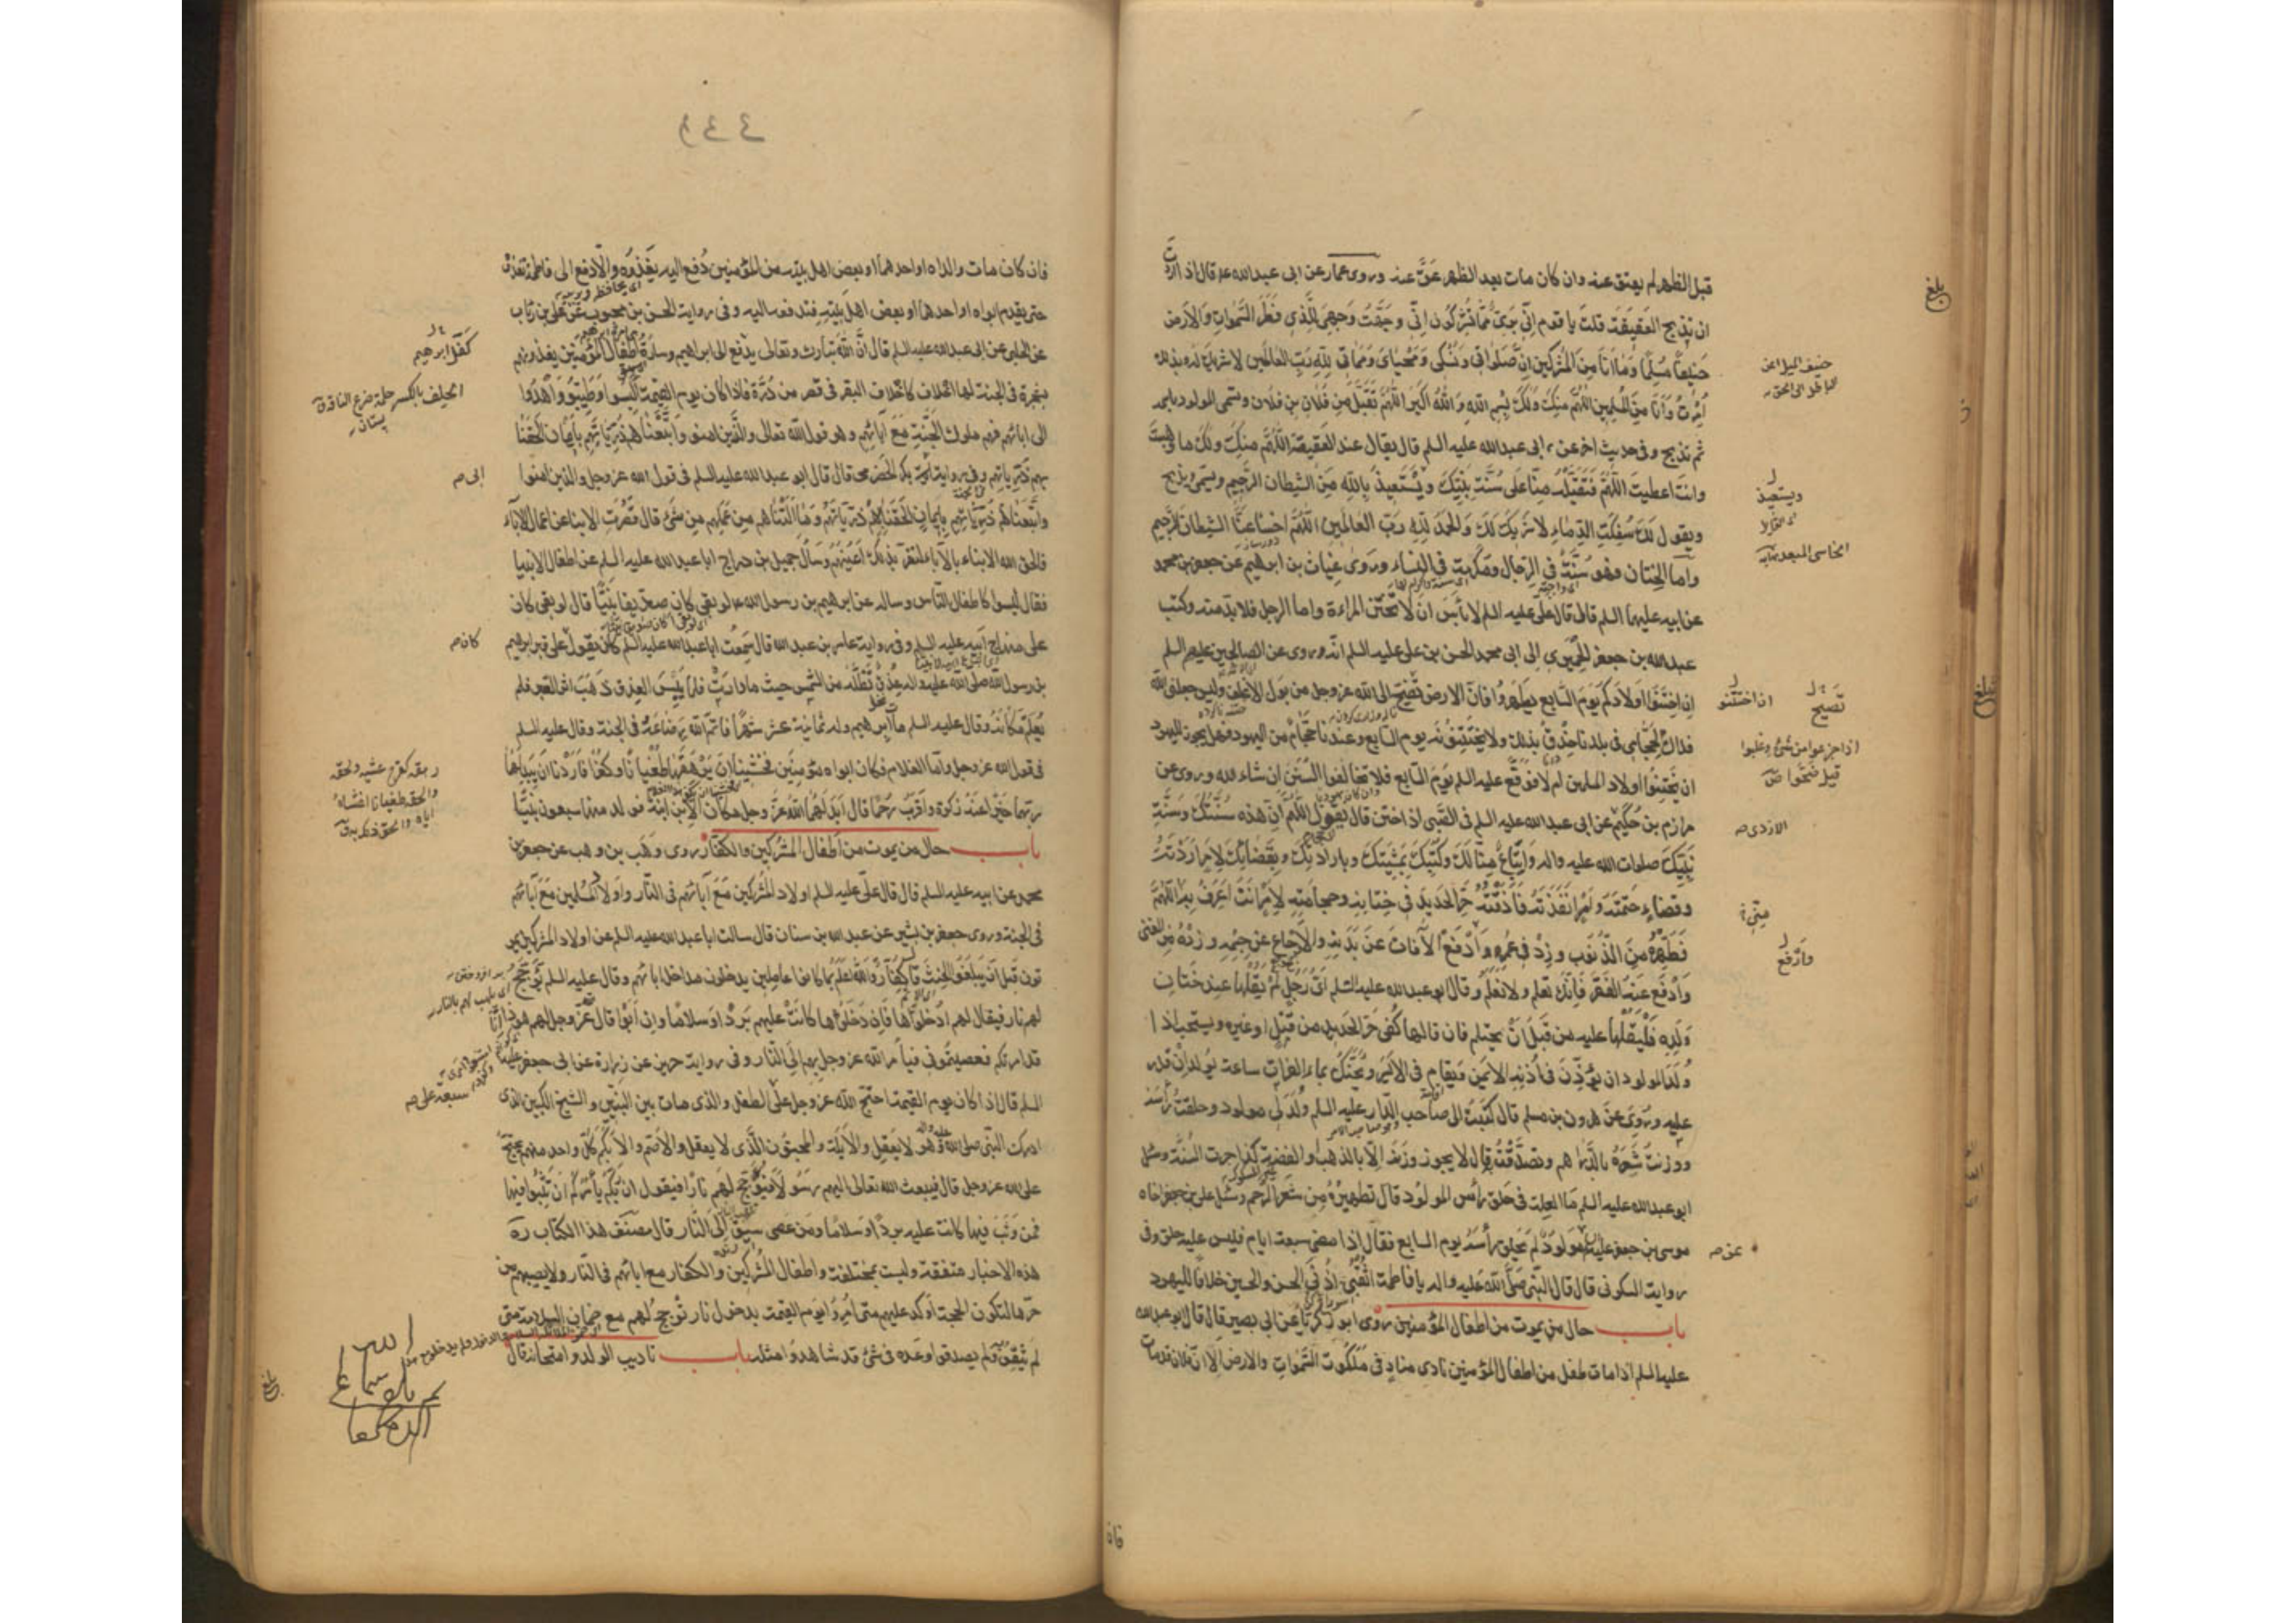 قبل الظهر لم يعق عنه وان كان مات بعد الظهر عق عنه وروى عمار عن ابى عبد الله ع قال اذا اردت
ان تذبح العقيقة قلت يا قوم اِنّى برىء مما تشركون انى وجهت وجهى للذى فطر السموات والارض
حنيفا مسلما وما انا من المشركين ان صلواتى ونسكى ومحياى ومماتى لله رب العالمين لا شريك له بذلك
امرت وانا من المسلمين اللهم منك ولك بسم الله والله اكبر اللهم تقبل من فلان بن فلان وتسمى المولود باسمه
ثم تذبح وفى حديث اخر عن ابى عبد الله عليه السلم قال يقال عند العقيقة اللهم منك ولك ما وهبت
وانت اعطيت اللهم فتقبله منا على سنة نبيك ويستعيذ بالله من الشيطان الرجيم ويسمى ويذبح
ويقول لك سفكت الدماء لا شريك لك والحمد لله رب العالمين اللهم اخسأ عنا الشيطان الرجيم
واما الختان فهو سنة فى الرجال ومكرمة فى النساء وروى غياث بن ابرهيم عن جعفر بن محمد
عن ابيه عليهما السلم قال قال على عليه السلم لا بأس ان لا تختتن المراءة واما الرجل فلا بد منه وكتب
عبد الله بن جعفر الحميرى الى ابى محمد الحسن بن على عليه السلم انه روى عن الصالحين عليهم السلم
ان اختنوا اولادكم يوم السابع يطهروا فان الارض تضج الى الله عز وجل من بول الاغلف وليس جعلنى الله
فداك لحجامى فى بلدنا حذق بذلك ولا يختنونه يوم السابع وعندنا حجام من اليهود فهل يجوز لليهود
ان يختنوا اولاد المسلمين ام لا فوقع عليه السلم يوم السابع فلا تخالفوا السنن ان شاء الله وروى عن
مرازم بن حكيم عن ابى عبد الله عليه السلم فى الصبى اذا ختن قال يقول اللهم ان هذه سنتك وسنة
نبيك صلوات الله عليه واله واتباع منا لك ولنبيك بمشيتك وبارادتك وبقضائك لامر اردته
وقضاء حتمته وامر انفذته فاذقته حر الحديد فى ختانه وحجامته لامر انت اعرف به اللهم
فطهره من الذنوب وزد فى عمره وادفع الآفات عن بدنه والاوجاع عن جسمه وزده من الغنى
وادفع عنه الفقر فانك تعلم ولا نعلم وقال ابو عبد الله عليه السلم اى رجل لم يقلها عند ختان
ولده فليقلها عليه من قبل ان يحتلم فان قالها كفى حر الحديد من قتل او غيره ويستحب اذا
ولد المولود ان يؤذن فى اذنه الايمن ويقام فى الايسر ويحنك بماء الفرات ساعة يولد ان قدر
عليه وروى عن هرون بن مسلم قال كتبت الى صاحب الدار عليه السلم ولد لى مولود وحلقت رأسه
ووزنت شعره بالدراهم وتصدقت به قال لا يجوز وزنه الا بالذهب او الفضة كذا جرت السنة وسئل
ابو عبد الله عليه السلم ما العلة فى حلق رأس المولود قال تطهيره من شعر الرحم وسئل على بن جعفر اخاه
موسى بن جعفر عليه السلم مولود لم يحلق رأسه يوم السابع فقال اذا مضى سبعة ايام فليس عليه حلق وفى
رواية السكونى قال قال النبى صلى الله عليه واله يا فاطمة اثقبى اذنى الحسن والحسين خلافا لليهود
باب حال من يموت من اطفال المؤمنين روى ابو زكريا عن ابى بصير قال قال ابو عبد الله
عليه السلم اذا مات طفل من اطفال المؤمنين نادى مناد فى ملكوت السموات والارض الا ان فلان قد مات
بلغ
حنيف
ويستعيذ
اذا اختتنوا
تصيح
الازدى ص
وارفع
عن ص
فان
فان كان مات والداه او احدهما او بعض اهل بيته من المؤمنين دفع اليه يغذوه والا دفع الى فاطمة تغذوه
حتى يقدم ابواه او احدهما او بعض اهل بيته فتدفعه اليه وفى رواية الحسن بن محبوب عن على بن رئاب
عن الحلبى عن ابى عبد الله عليه السلم قال ان الله تبارك وتعالى يدفع الى ابراهيم وسارة اطفال المؤمنين يغذونهم
بشجرة فى الجنة لها اخلاف كاخلاف البقر فى قصر من درة فاذا كان يوم القيمة البسوا وطيبوا واهدوا
الى ابائهم فهم ملوك الجنة مع آبائهم وهو قول الله تعالى والذين امنوا واتبعناهم ذرياتهم بايمان الحقنا
بهم ذرياتهم وفى رواية ابى بكر الحضرمى قال قال ابو عبد الله عليه السلم فى قول الله عز وجل والذين امنوا
واتبعناهم ذرياتهم بايمان الحقنا بهم ذرياتهم وما التناهم من عملهم من شىء قال قصرت الابناء عن اعمال الآباء
فالحق الله الابناء بالآباء لتقر بذلك اعينهم وسأل جميل بن دراج ابا عبد الله عليه السلم عن اطفال الانبيا
فقال ليسوا كاطفال الناس وساله عن ابرهيم بن رسول الله ص لو بقى كان صديقا نبيا قال لو بقى كان
على منهاج ابيه عليه السلم وفى رواية عامر بن عبد الله قال سمعت ابا عبد الله عليه السلم كان يقول على قبر ابرهيم
بن رسول الله صلى الله عليه واله عذق تظله من الشمس حيث ما دارت فلما يبس العذق ذهب اثر القبر فلم
يعلم مكانه وقال عليه السلم مات ابرهيم وله ثمانية عشر شهرا فاتم الله رضاعه فى الجنة وقال عليه السلم
فى قول الله عز وجل واما الغلام فكان ابواه مؤمنين فخشينا ان يرهقهما طغيانا وكفرا فاردنا ان يبدلهما
ربهما خيرا منه زكوة واقرب رحما قال ابدلهما الله عز وجل مكان الابن ابنة فولد منها سبعون نبيا
باب حال من يموت من اطفال المشركين والكفار روى وهب بن وهب عن جعفر بن
محمد عن ابيه عليه السلم قال قال على عليه السلم اولاد المشركين مع آبائهم فى النار واولاد المسلمين مع آبائهم
فى الجنة وروى جعفر بن بشير عن عبد الله بن سنان قال سالت ابا عبد الله عليه السلم عن اولاد المشركين يمو
تون قبل ان يبلغوا الحنث قال كفار والله اعلم بما كانوا عاملين يدخلون مداخل ابائهم وقال عليه السلم تؤجج
لهم نار فيقال لهم ادخلوها فان دخلوها كانت عليهم بردا وسلاما وان ابوا قال عز وجل لهم هو ذا انا
قد امرتكم فعصيتمونى فيأمر الله عز وجل بهم الى النار وفى رواية حريز عن زرارة عن ابى جعفر عليه
السلم قال اذا كان يوم القيمة احتج الله عز وجل على الطفل والذى مات بين النبيين والشيخ الكبير الذى
ادرك النبى صلى الله عليه واله وهو لا يعقل والابله والمجنون الذى لا يعقل والاصم والابكم كل واحد منهم يحتج
على الله عز وجل قال فيبعث الله تعالى اليهم رسولا فيؤجج لهم نارا فيقول ان ربكم يأمركم ان تثبوا فيها
فمن وثب فيها كانت عليه بردا وسلاما ومن عصى سيق الى النار قال مصنف هذا الكتاب ره
هذه الاخبار متفقة وليست بمختلفة واطفال المشركين والكفار مع ابائهم فى النار ولا يصيبهم من
حرها لتكون الحجة اوكد عليهم متى امروا يوم القيمة بدخول نار تؤجج لهم مع ضمان السلامة متى
لم يثقوا ولم يصدقوا وعده فى شىء قد شاهدوا مثله باب تاديب الولد وامتحانه قال
كفل ابرهيم
ابى ص
كان ص
بلغ